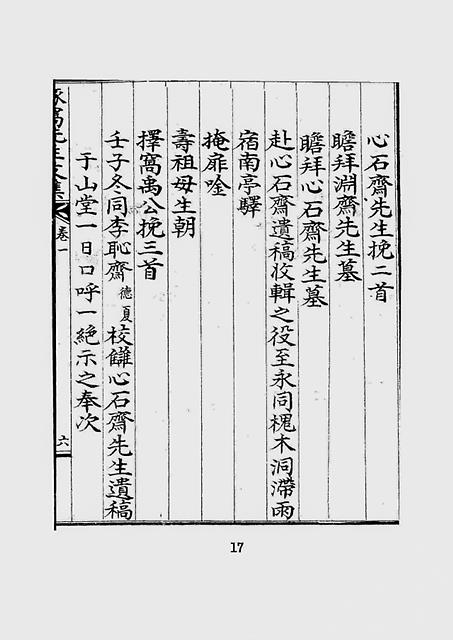 心石齋先生挽二首
瞻拜淵齋先生墓
瞻拜心石齋先生墓
赴心石齋遺稿收輯之役至永同槐木洞滯雨
宿南亭驛
掩扉唫
壽祖母生朝
擇窩禹公挽三首
壬子冬同李恥齋德夏校讎心石齋先生遺稿
于山堂一日口呼一絶示之奉次
卷一
六
17